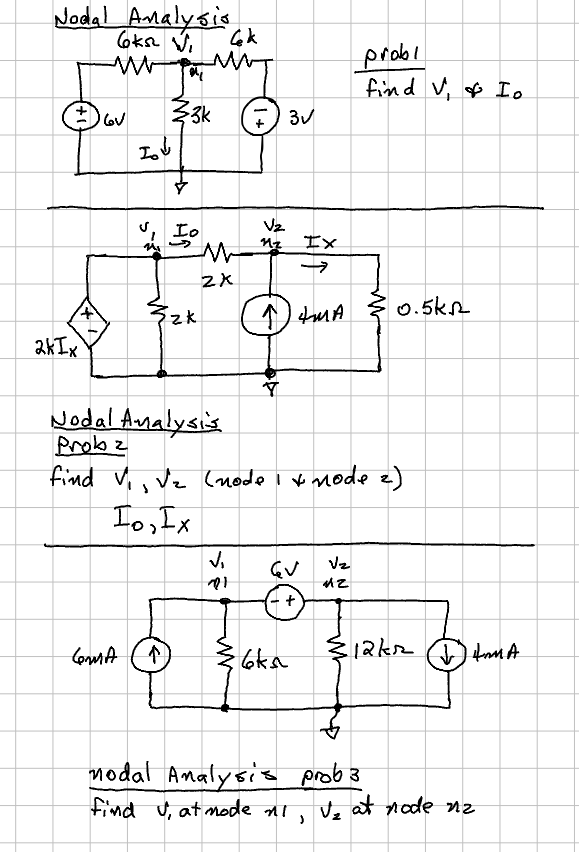 Nodal Analysis
6kΩ V₁ 6k
n₁
prob1
find V₁ & I₀
6V 3k 3V
I₀↓
V₁ I₀ V₂ Ix
n₁ → n₂ →
2k
2k ↑ 4mA 0.5kΩ
+
-
2kIx
Nodal Analysis
Prob 2
find V₁, V₂ (node 1 & node 2)
I₀, Ix
V₁ 6V V₂
n1 - + n2
6mA ↑ 6kΩ 12kΩ ↓ 4mA
nodal Analysis prob 3
find V₁ at node n1, V₂ at node n2